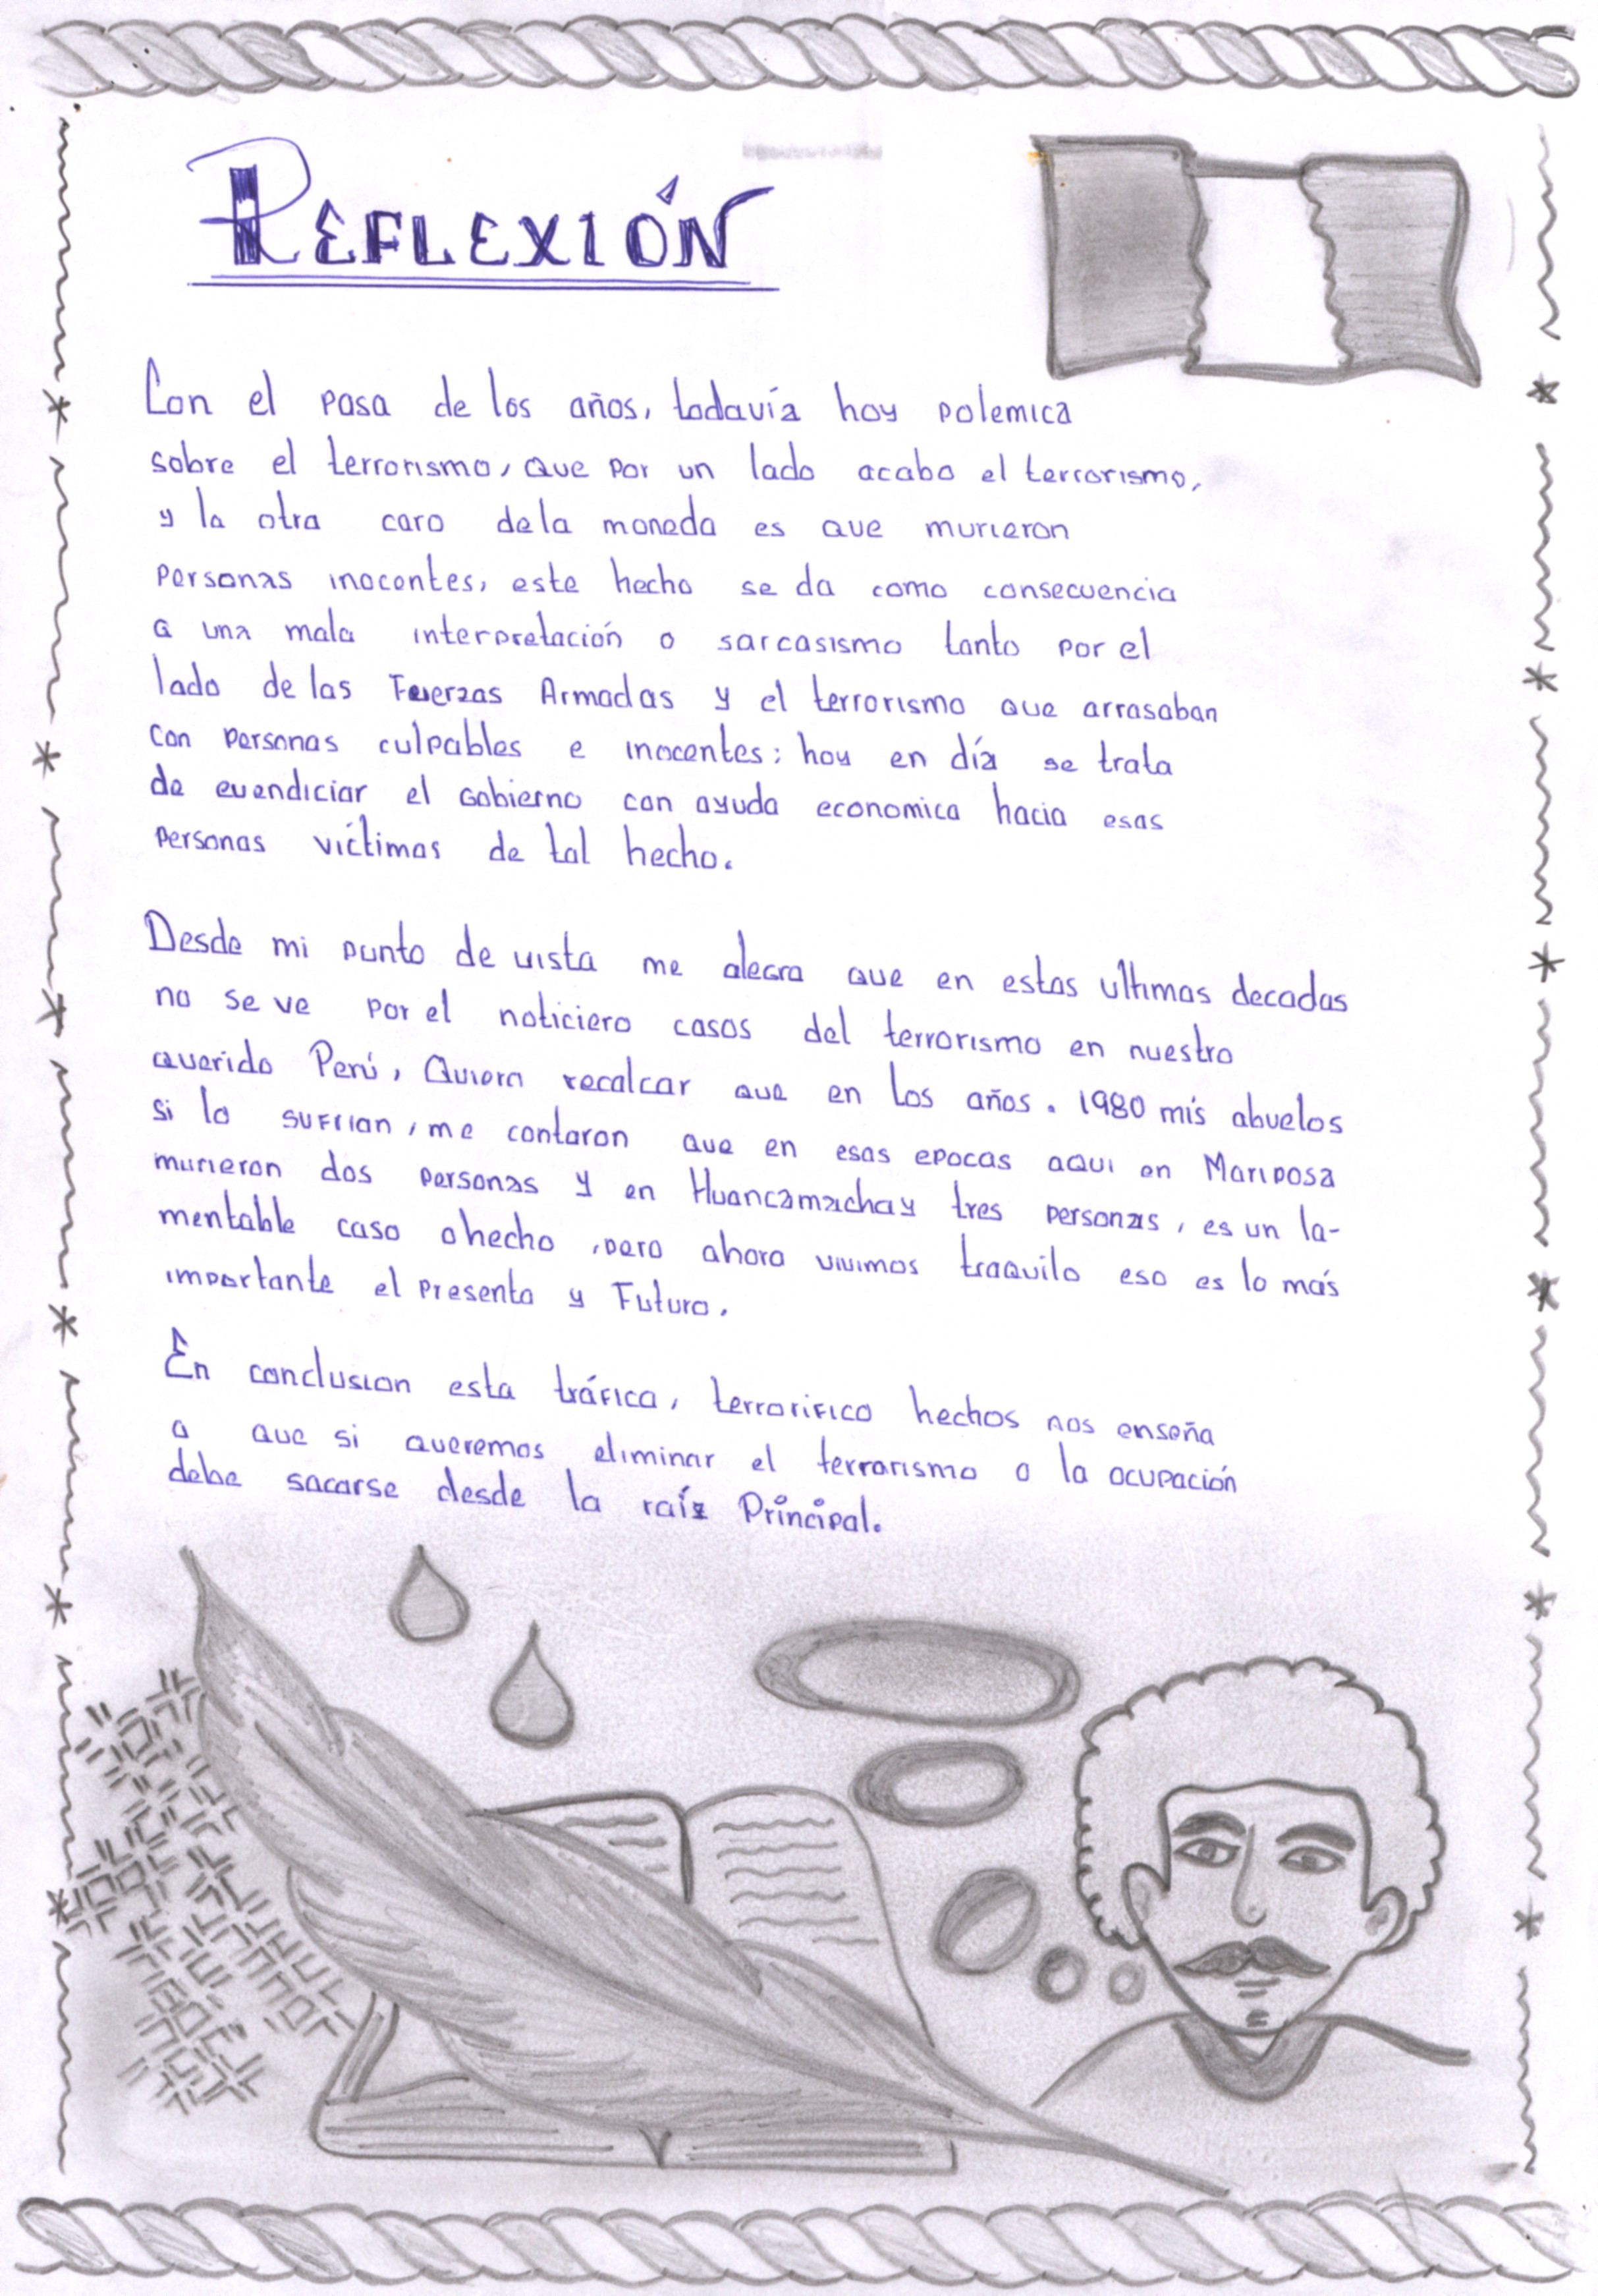 REFLEXIÓN
Con el pasa de los años, todavía hoy polemica
sobre el terrorismo, que por un lado acabo el terrorismo,
y la otra caro dela moneda es que murieron
personas inocentes, este hecho se da como consecuencia
a una mala interpretación o sarcasismo tanto por el
lado de las Fuerzas Armadas y el terrorismo que arrasaban
con personas culpables e inocentes; hoy en día se trata
de evendiciar el gobierno con ayuda economica hacia esas
personas víctimas de tal hecho.
Desde mi punto de vista me alegra que en estas ultimas decadas
no se ve por el noticiero casos del terrorismo en nuestro
querido Perú, Quiero recalcar que en los años. 1980 mis abuelos
si lo sufrian, me contaron que en esas epocas aqui en Mariposa
murieron dos personas y en Huancamachay tres personas, es un la-
mentable caso o hecho, pero ahora vivimos traquilo eso es lo más
importante el presente y Futuro.
En conclusion esta tráfica, terrorifico hechos nos enseña
a que si queremos eliminar el terrorismo o la ocupación
debe sacarse desde la raíz Principal.